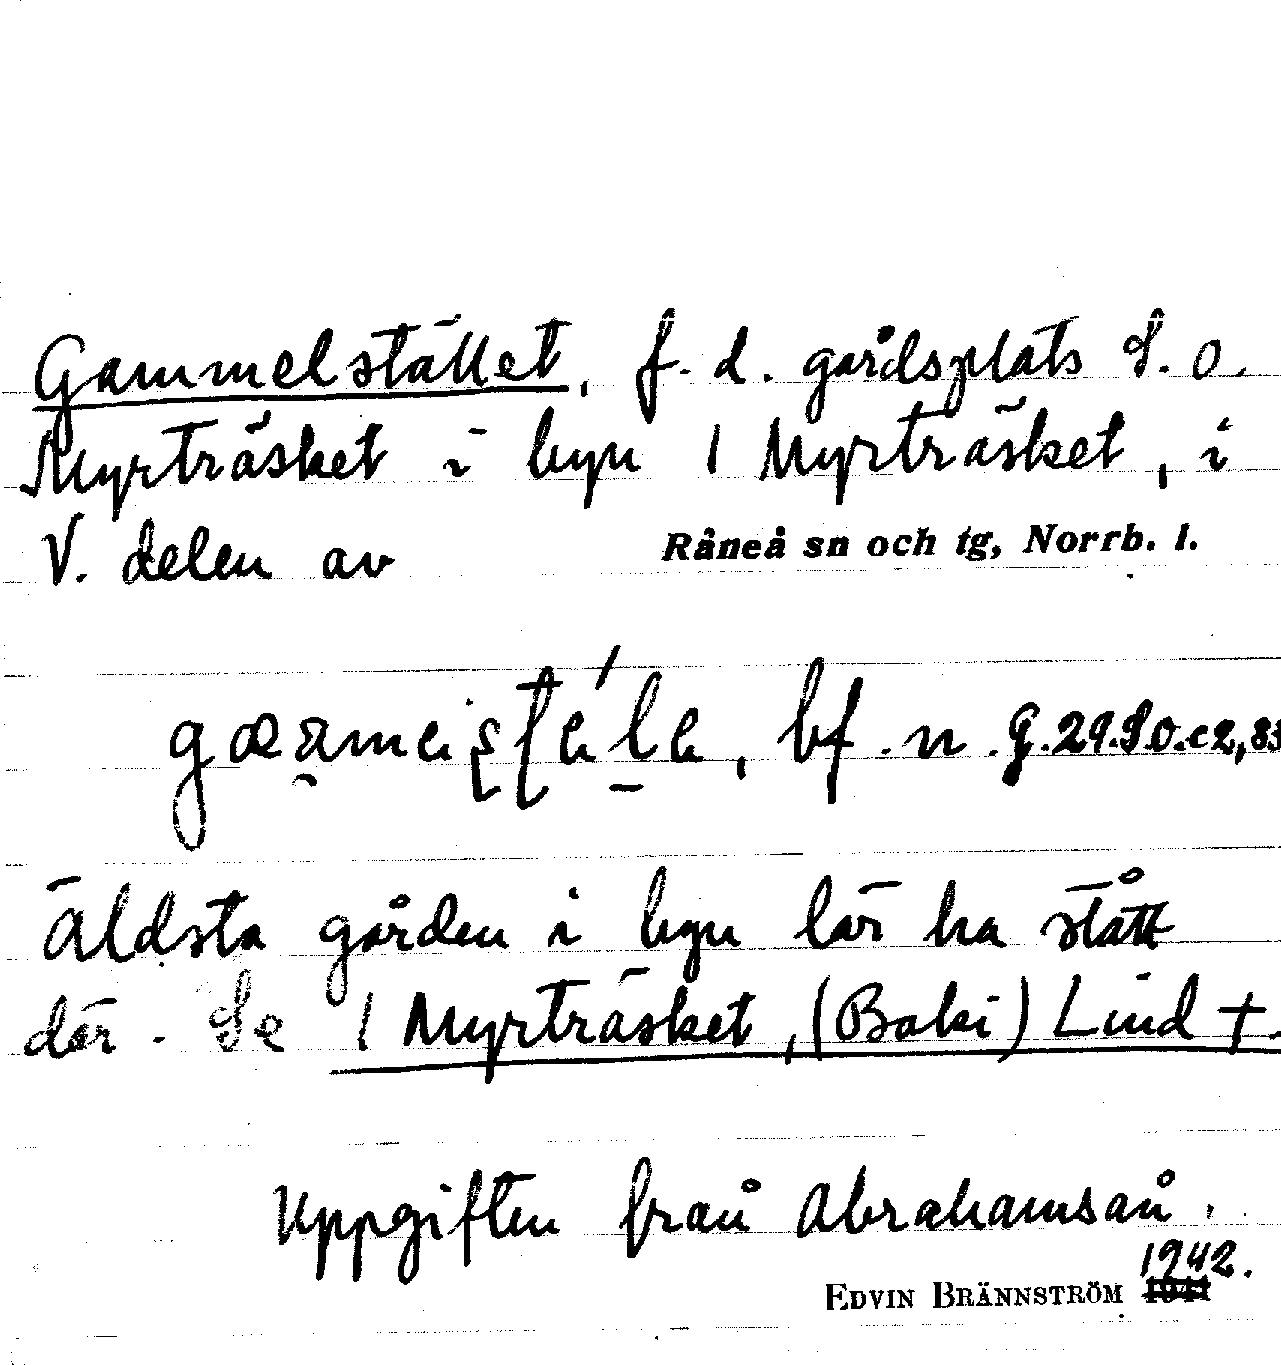 Gammelstället, f. d. gårdsplats S. o.
Myrträsket i byn 1 Myrträsket, i
V. delen av Råneå sn och tg, Norrb. l.
bf. n. G. 29. S o. c2, 83
Äldsta gården i byn lär ha stått
där. Se 1 Myrträsket, (Baki) Lind +.
Uppgiften från Abrahamsån.
1942.
EDVIN BRÄNNSTRÖM 1941